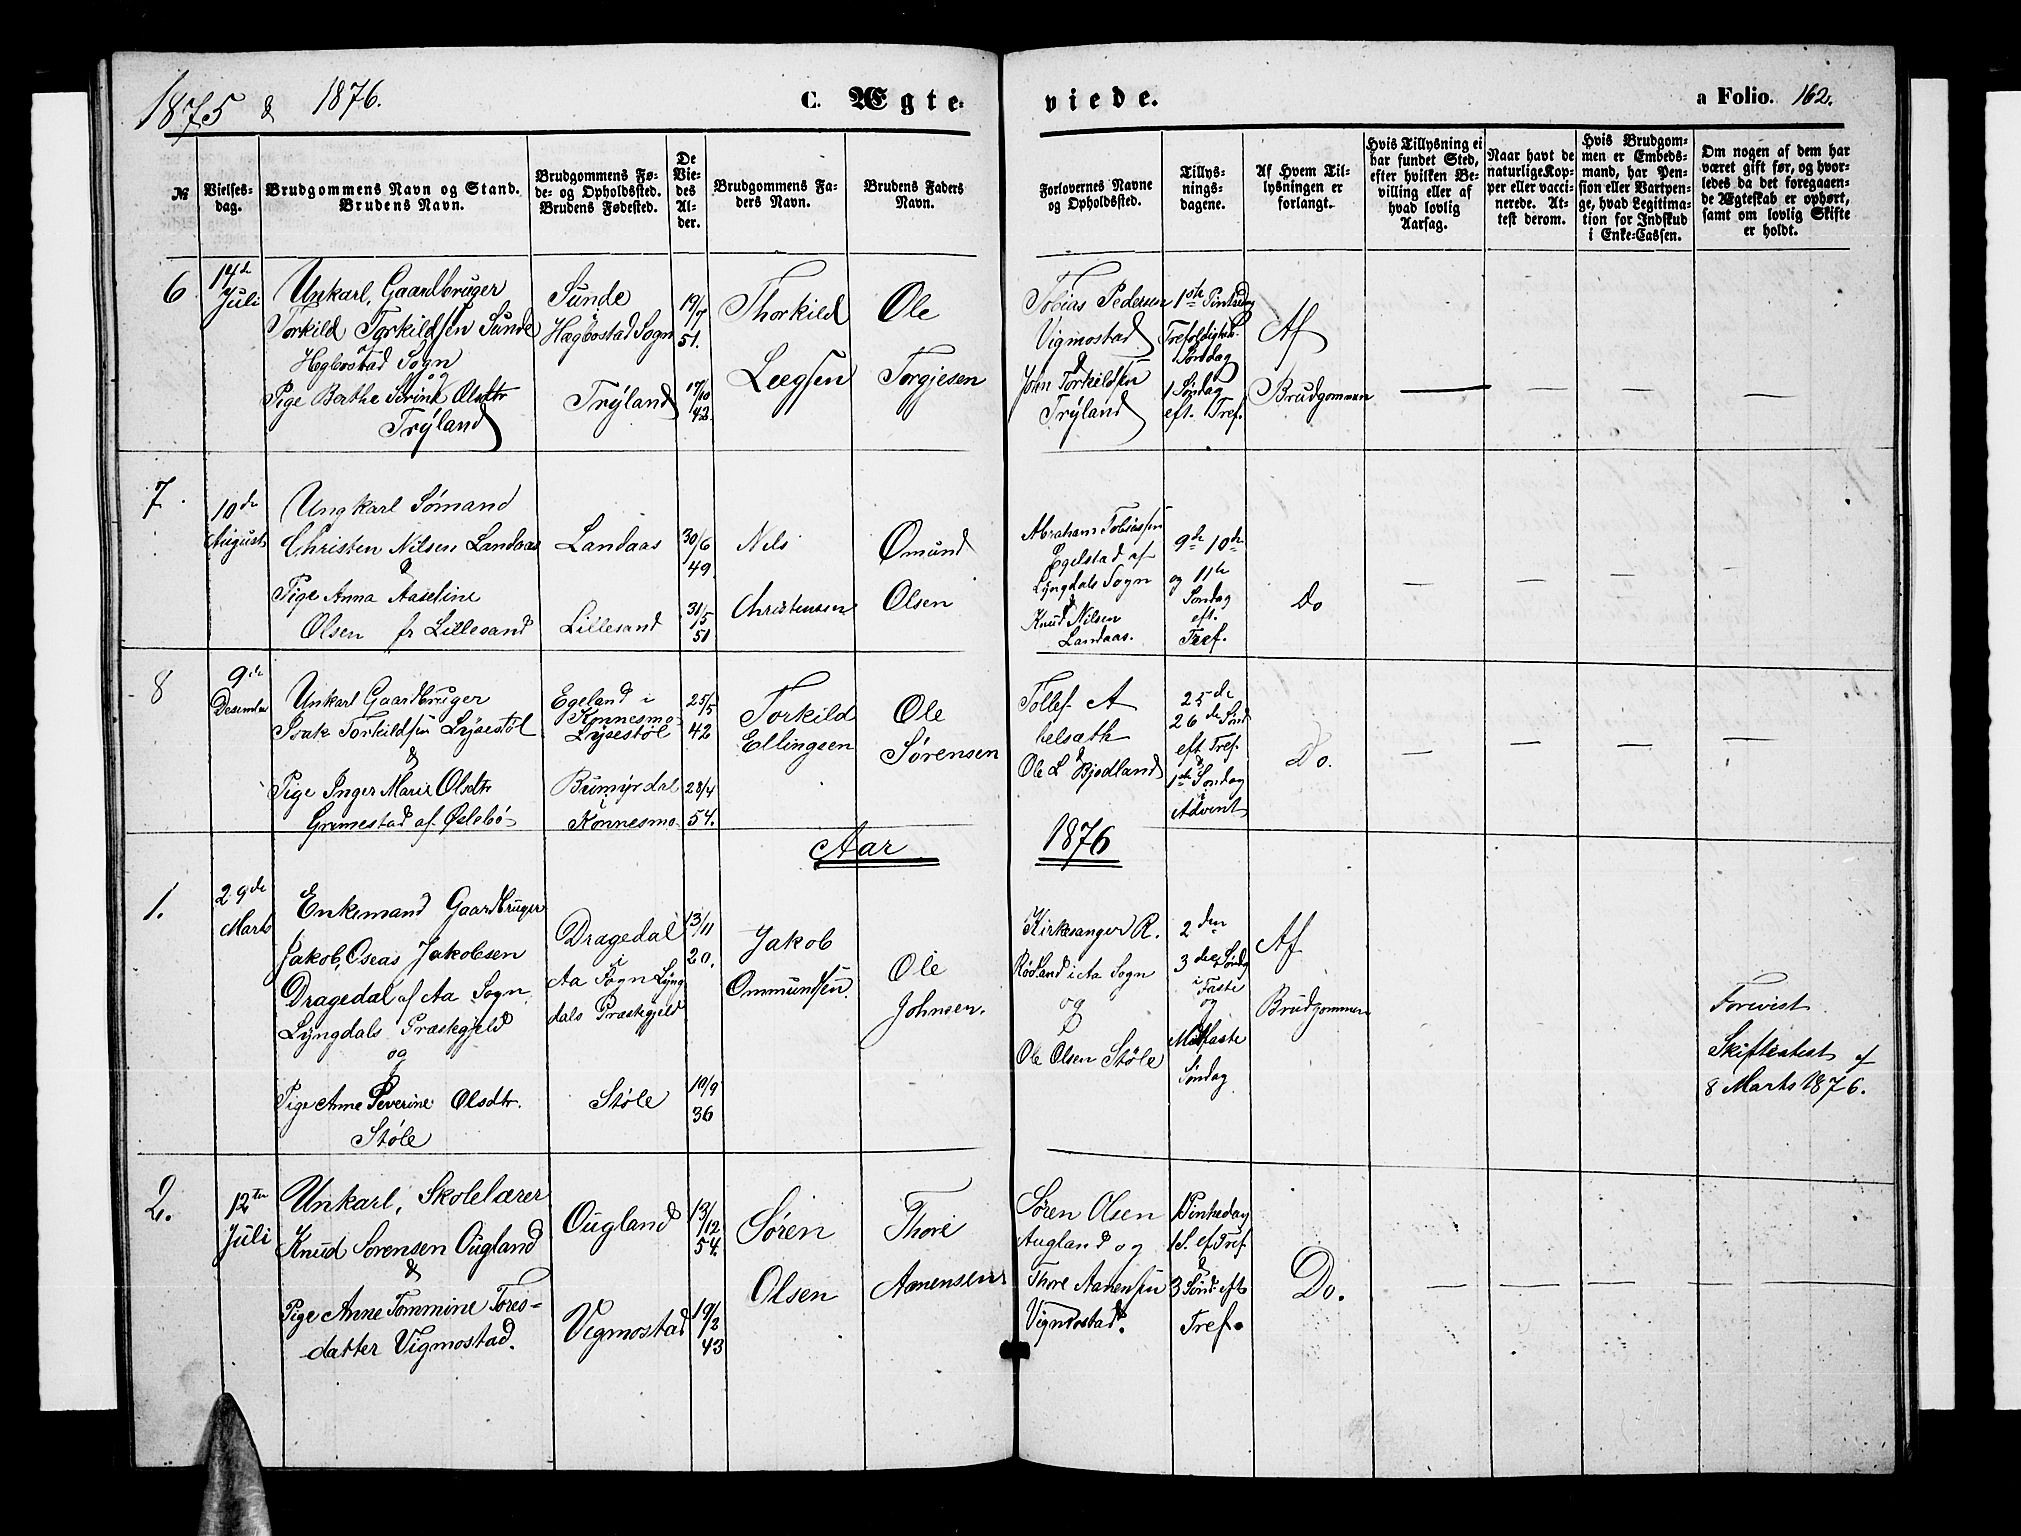 1875 & 1876.
C. Ægte-
viede.
a Folio. 162.
№
Vielses-
dag.
Brudgommens Navn og Stand.
Brudens Navn.
Brudgommens Fø-
de- og Opholdssted.
Brudens Fødested.
De
Vie-
des
Al-
der.
Brudgommens Fa-
ders Navn.
Brudens Faders
Navn.
Forlovernes Navne
og Opholdssted.
Tillys-
nings-
dagene.
Af Hvem Til-
lysningen er
forlangt.
Hvis Tillysning ei
har fundet Sted,
efter hvilken Be-
villing eller af
hvad lovlig
Aarsag.
Naar havt de
naturlige Kop-
per eller vacci-
nerede. At-
test derom.
Hvis Brudgom-
men er Embeds-
mand, har Pen-
sion eller Vartpen-
ge, hvad Legitima-
tion for Indskud
i Enke-Cassen.
Om nogen af dem har
været gift før, og hvor-
ledes da det foregaaen-
de Ægteskab er ophørt,
samt om lovlig Skifte
er holdt.
6
14de
Juli
Unkarl, Gaardbruger
Torkild Torkildsen Sunde
Hegbostad Sogn
og
Pige Berthe Serine Olsdtr
Trÿland
Sunde
Hægbostad Sogn
Trÿland
19/7
51.
17/10
42.
Thorkild
Leegsen
Ole
Torgjesen
Tobias Pedersen
Vigmostad
&
John Torkildsen
Trÿland
1ste Pintsedag
Trefoldigheds
Søndag
1 Søndag
eft. Tref.
Af
Brudgommen
— — — —
7.
10de
August
Ungkarl Sømand
Christen Nilsen Landaas
&
Pige Anna Aaseline
Olsen fr Lillesand
Landaas
Lillesand
30/6
49.
31/5
51
Nils
Christensen
Omund
Olsen
Abraham Tobiassen
Egelstad af
Lyngdals Sogn
&
Knud Nilsen
Landaas.
9de 10de
og 11te
Søndag
eft.
Tref.
Do
— — — —
8
9de
Desember
Unkarl Gaardbruger
Isak Torkildsen Lÿsestøl
&
Pige Inger Marie Olsdtr
Grimestad af Øslebø
Egeland i
Konnesmo
Lÿsestøl
Bumÿrdal
i
Konnesmo
25/5
42
28/4
54.
Torkild
Ellingsen
Ole
Sørensen
Tollef A
helsæth
&
Ole L Bjedland
25de
26de Sønd
eft Tref.
&
1ste Søndag
i
Advent
Do.
— — — —
Aar 1876
1.
29de
Marts
Enkemand Gaardbruger
Jakob Oseas Jakobsen
Dragedal af Aa Sogn
Lÿngdals Præstegjeld
og
Pige Anne Severine Olsdtr.
Støle
Dragedal
i
Aa Sogn Lÿng
dals Præstegjeld
Støle
13/11
20.
10/9
36
Jakob
Ommundsen.
Ole
Johnsen.
Kirkesanger R.
Rødland i Aa Sogn
og
Ole Olsen Støle
2den
3die Søndg
i Faste
og
Midfaste
Søndag
Af
Brudgommen
Forevist
Skifteatest af
8 Marts 1876.
2.
12te
Juli
Unkarl, Skolelærer
Knud Sorensen Oügland
&
Pige Anne Tommine Tores-
datter Vigmostad.
Oügland
Vigmostad
13/12
54.
19/2
43
Søren
Olsen
Thore
Aanensen
Søren Olsen
Augland og
Thore Aanensen
Vigmostad.
1 Pintsedag
1 S. ef. Tref.
&
3 Sønd eft
Tref.
Do.
— — — —